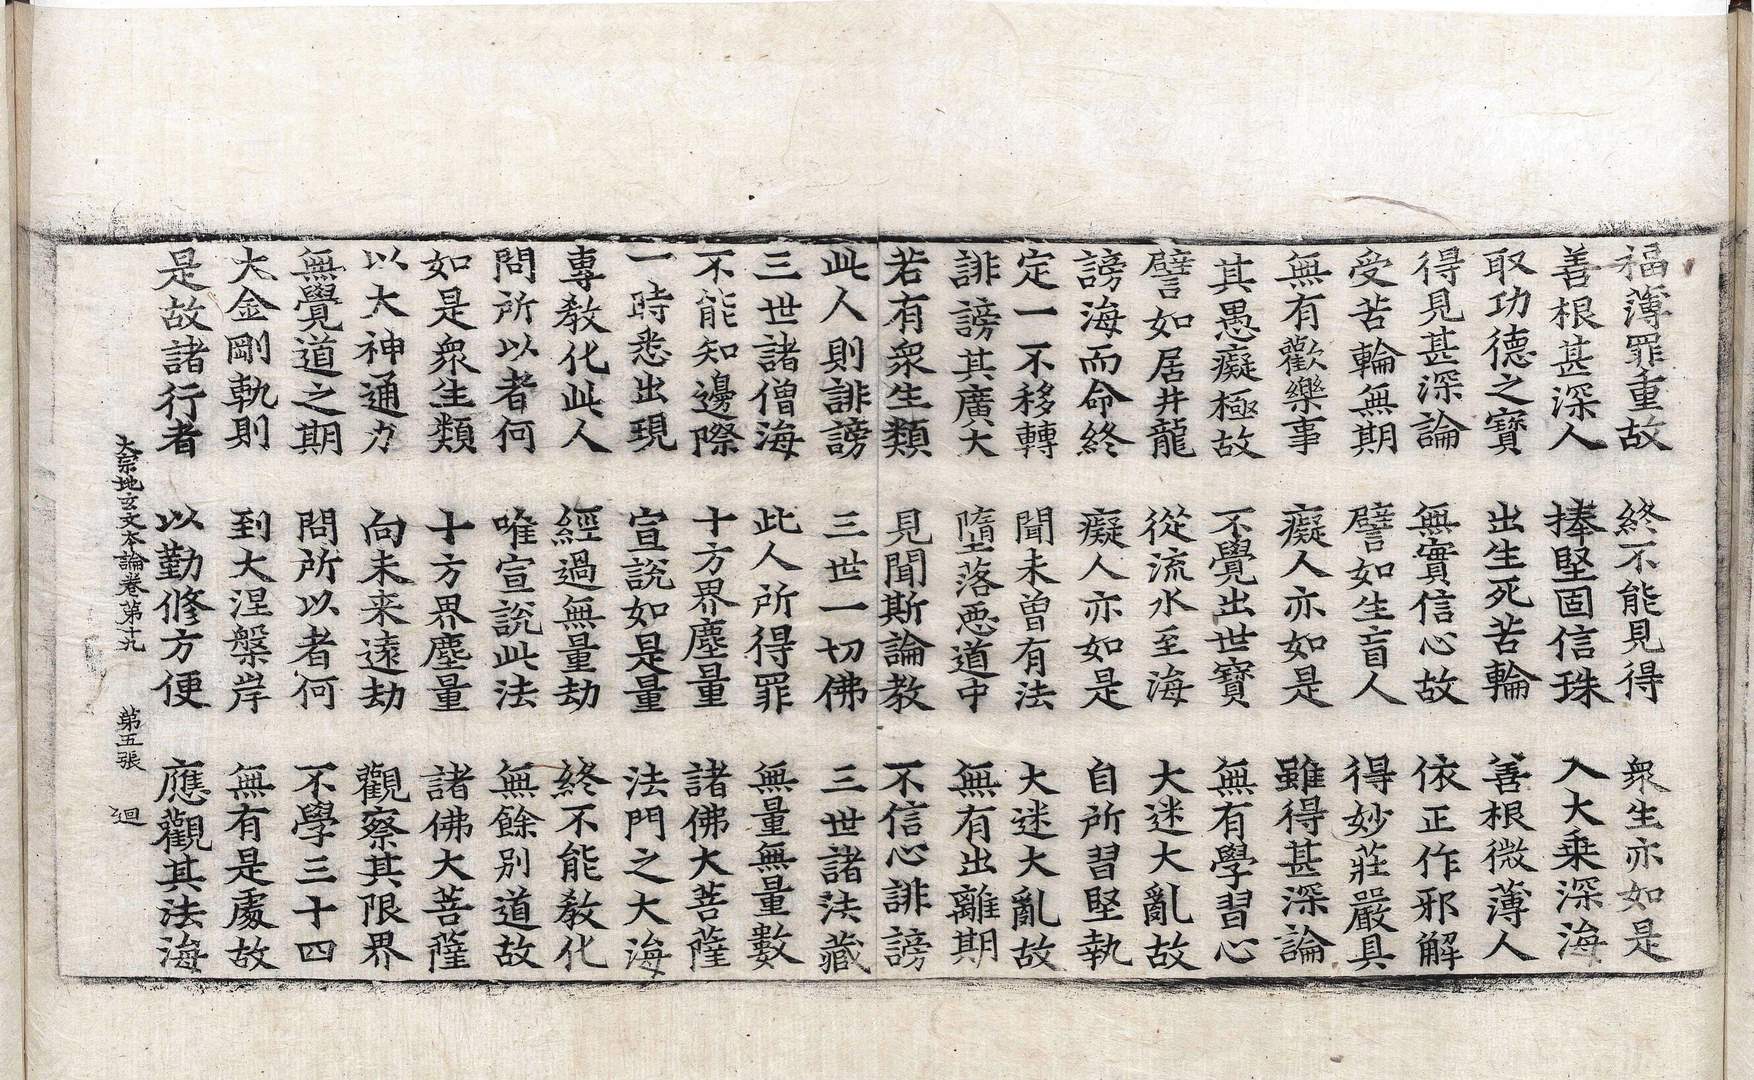 福薄罪重故　終不能見得　衆生亦如是
善根甚深人　捧堅固信珠　入大乗深海
取功德之寶　出生死苦輪　善根微薄人
得見甚深論　無實信心故　依正作邪解
受苦輪無期　譬如生盲人　得妙莊嚴具
無有歡樂事　癡人亦如是　雖得甚深論
其愚癡極故　不覺出世寶　無有學習心
譬如居井龍　從流水至海　大迷大亂故
謗海而命終　癡人亦如是　自所習堅執
定一不移轉　聞未曾有法　大迷大亂故
誹謗其廣大　墮落惡道中　無有出離期
若有衆生類　見聞斯論教　不信心誹謗
此人則誹謗　三世一切佛　三世諸法藏
三世諸僧海　此人所得罪　無量無量數
不能知邊際　十方界塵量　諸佛大菩薩
一時悉出現　宣說如是量　法門之大海
專教化此人　經過無量劫　終不能教化
問所以者何　唯宣說此法　無餘别道故
如是衆生類　十方界塵量　諸佛大菩薩
以大神通力　向未来遠劫　觀察其限界
無覺道之期　問所以者何　不學三十四
大金剛軌則　到大涅槃岸　無有是處故
是故諸行者　以勤修方便　應觀其法海
大宗地玄文本論卷第十九　第五張　廻